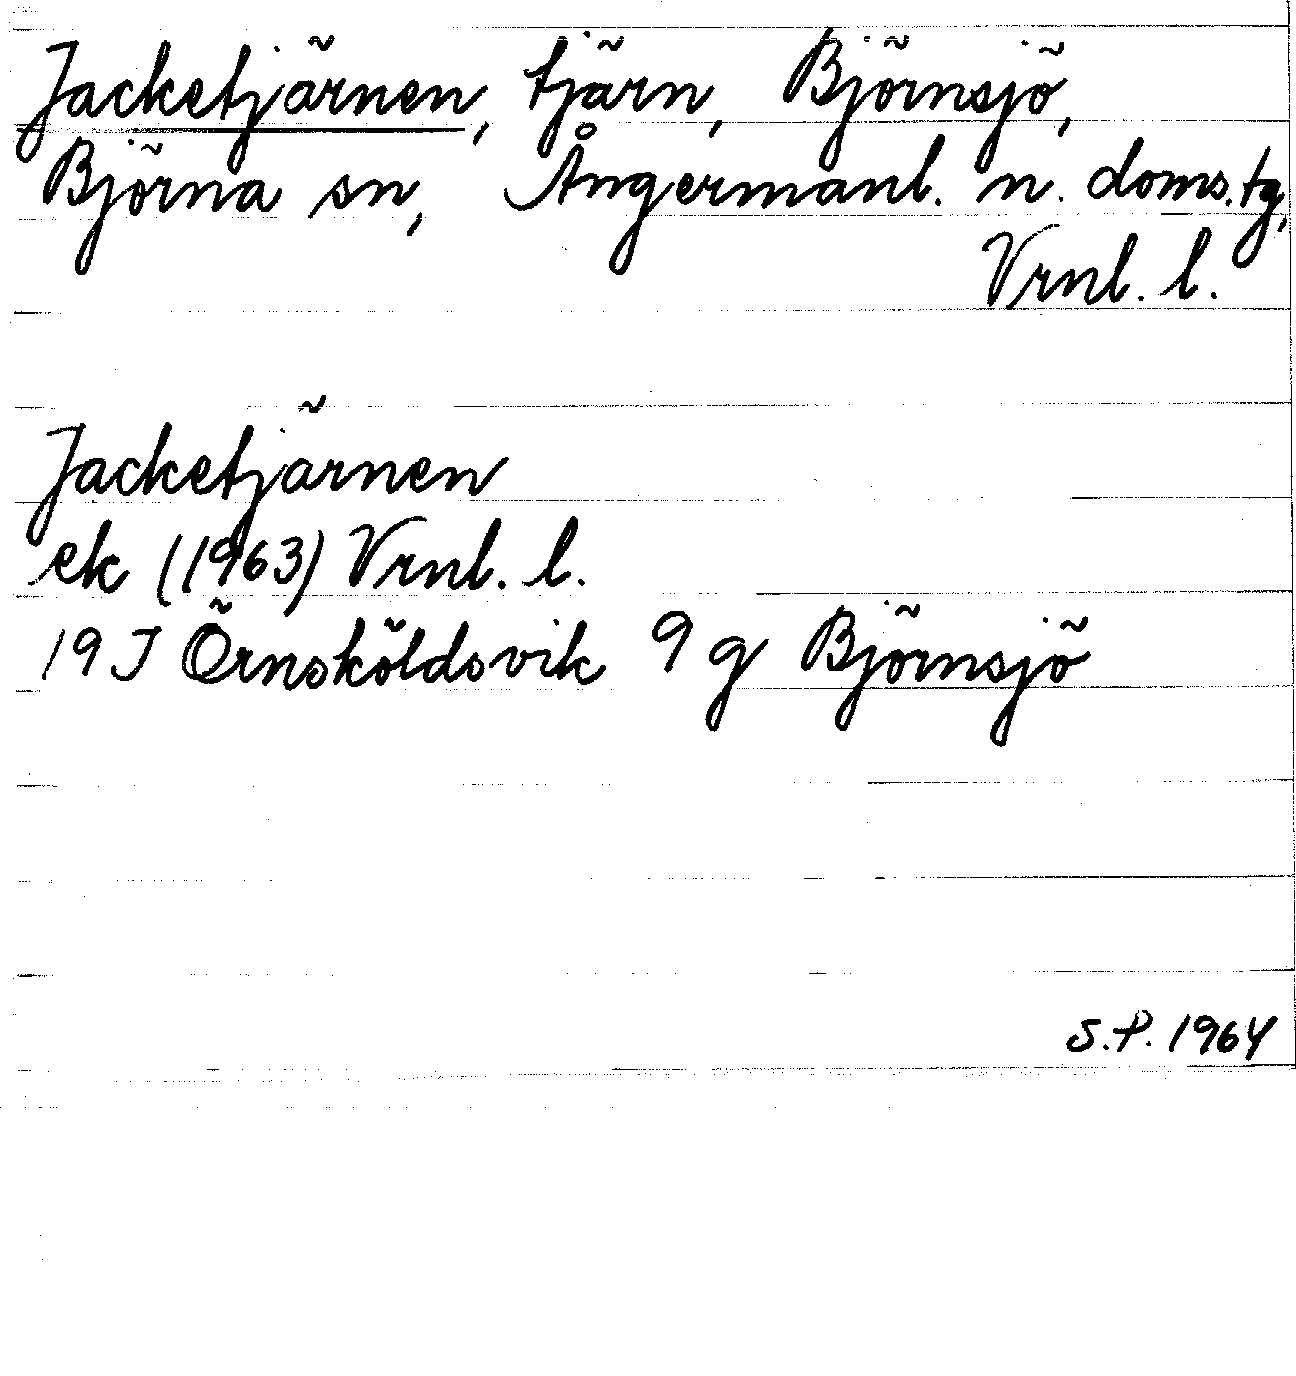 Jacketjärnen, tjärn, Björnsjö,
Björna sn, Ångermanl. n. doms.tg,
Vrnl. l.
Jacketjärnen
ek (1963) Vrnl. l.
19 J Örnsköldsvik 9 g Björnsjö
S.P. 1964